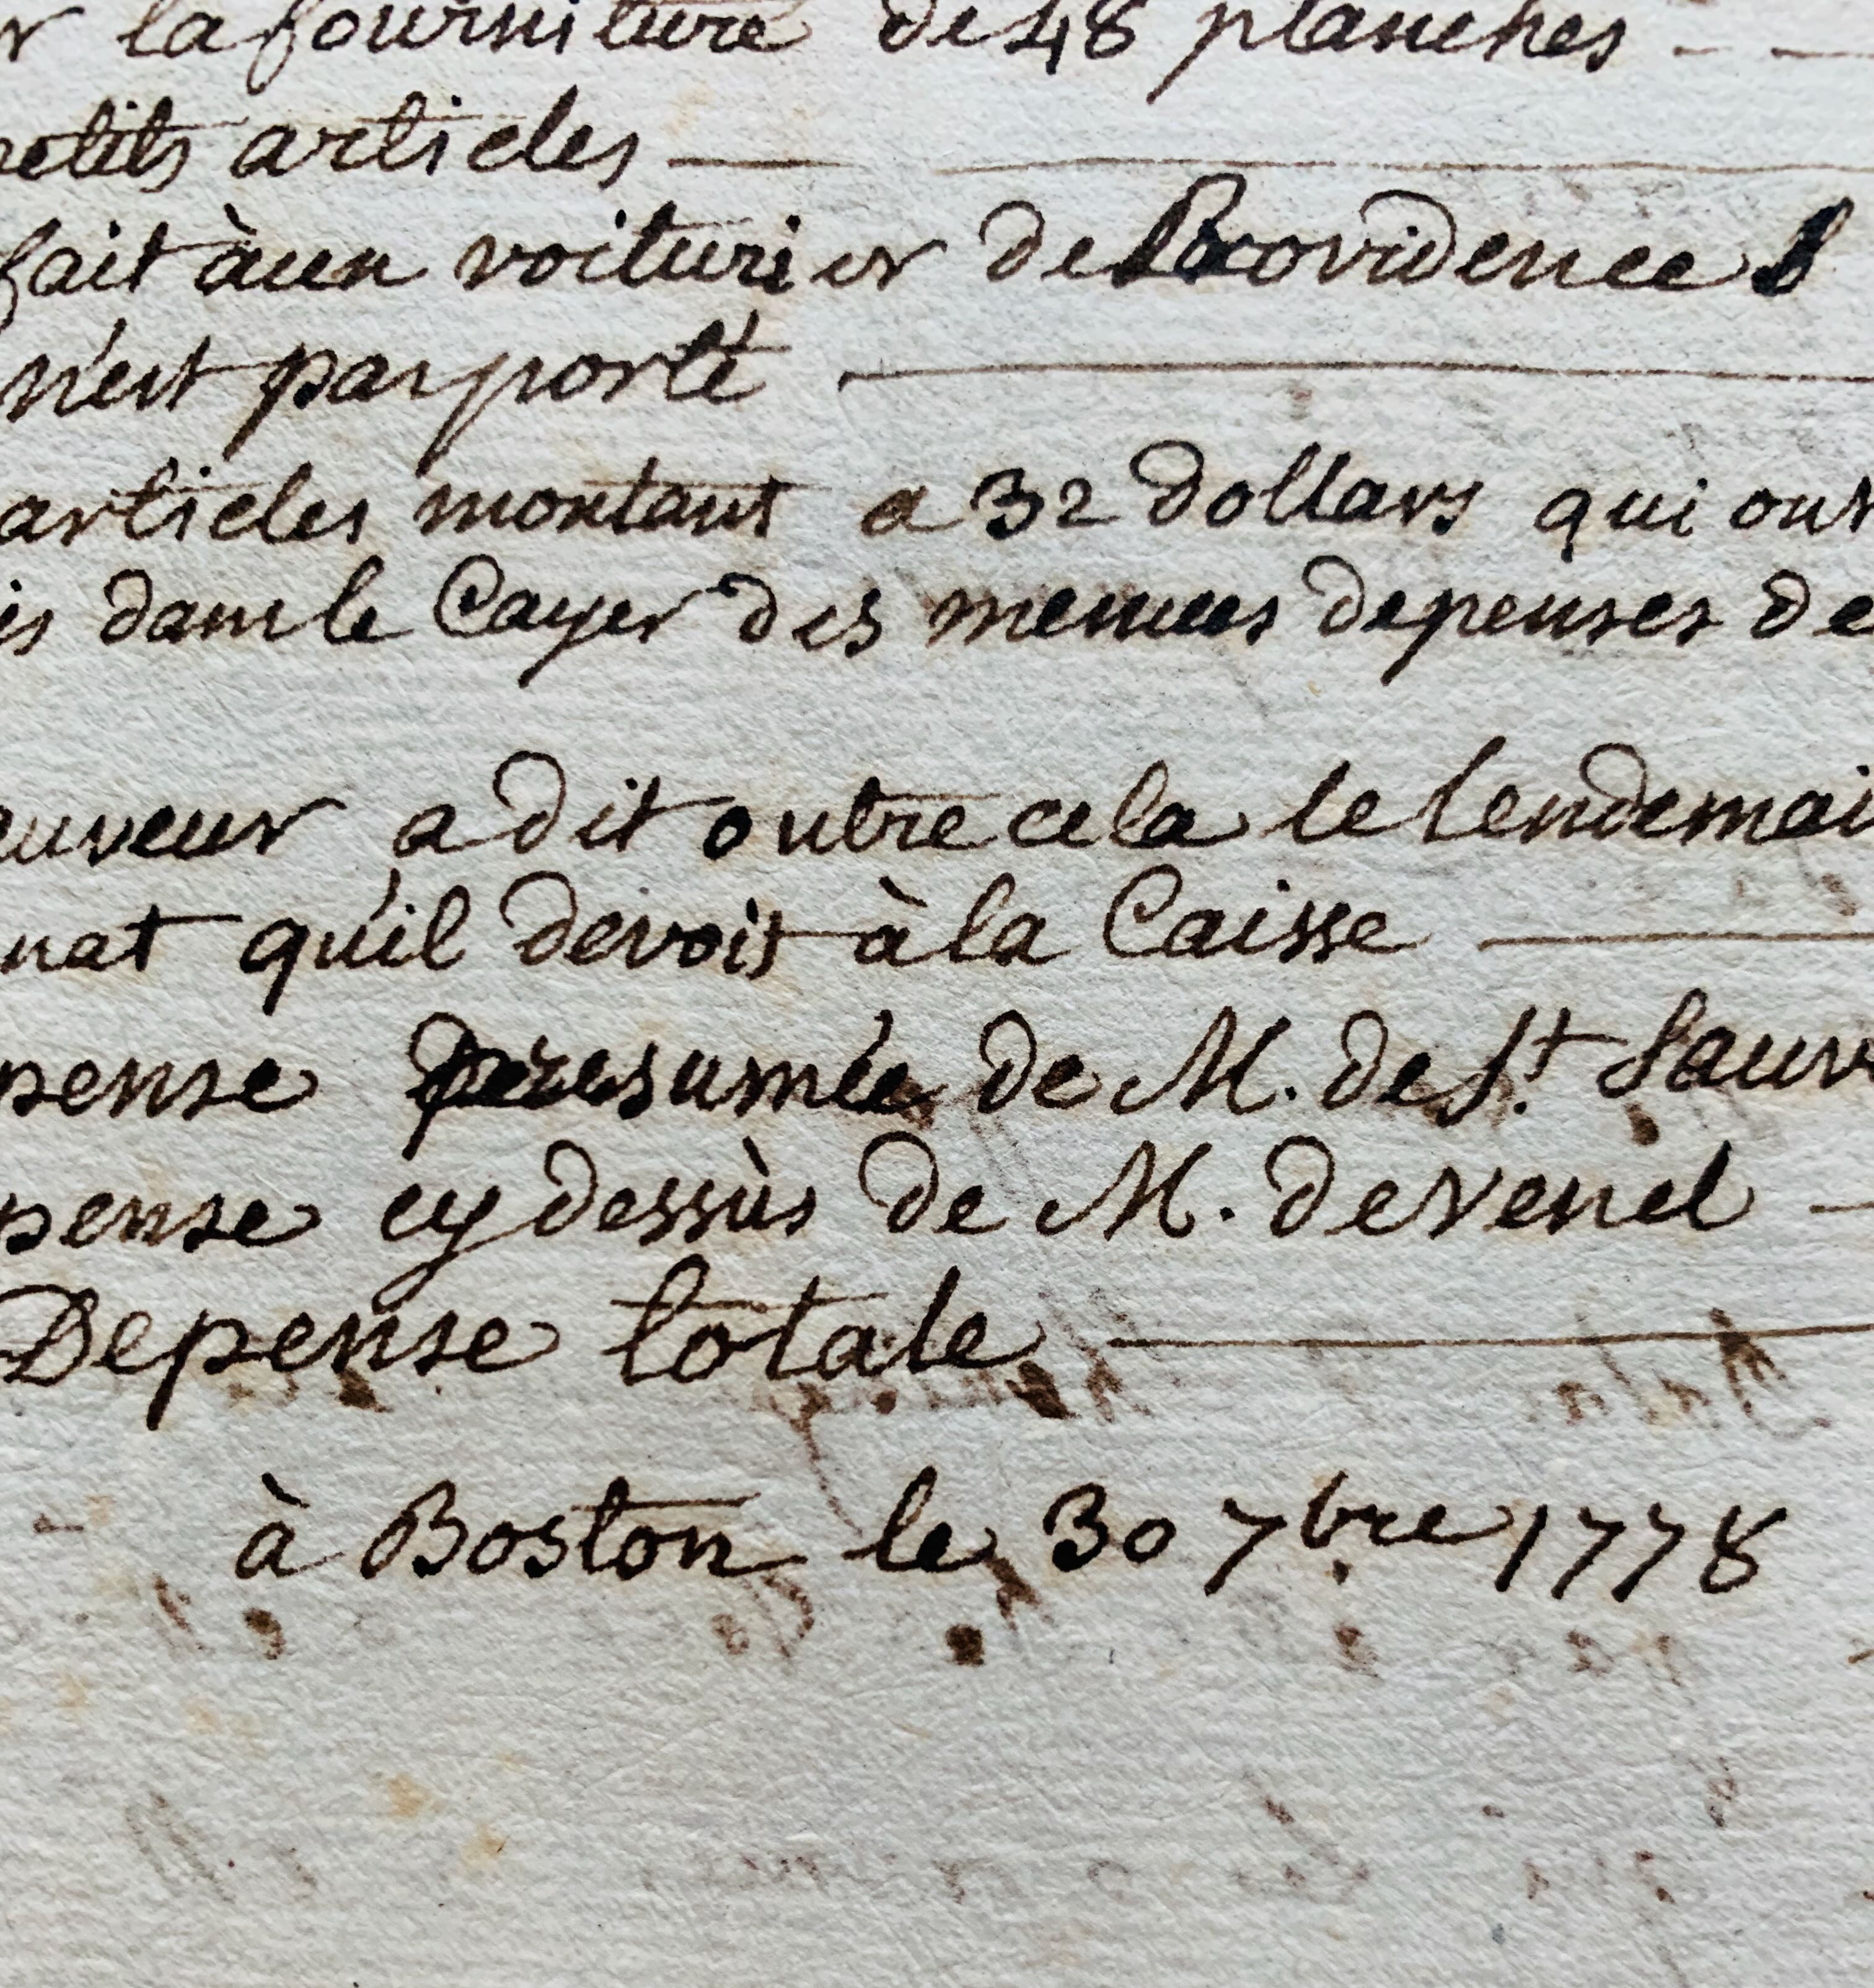 r la fourniture de 48 planches - -
petits articles
fait à un voiturier de Providence
n'est pas porté
articles montant a 32 dollars qui ont
is dans le Cayer des menues depenses de
auveur a dit outre cela le lendemai
nat qu'il devoit à la Caisse
pense presumée de M. de St. Sauve
pense cy dessùs de M. de Venel
Depense totale
à Boston le 30 7bre 1778